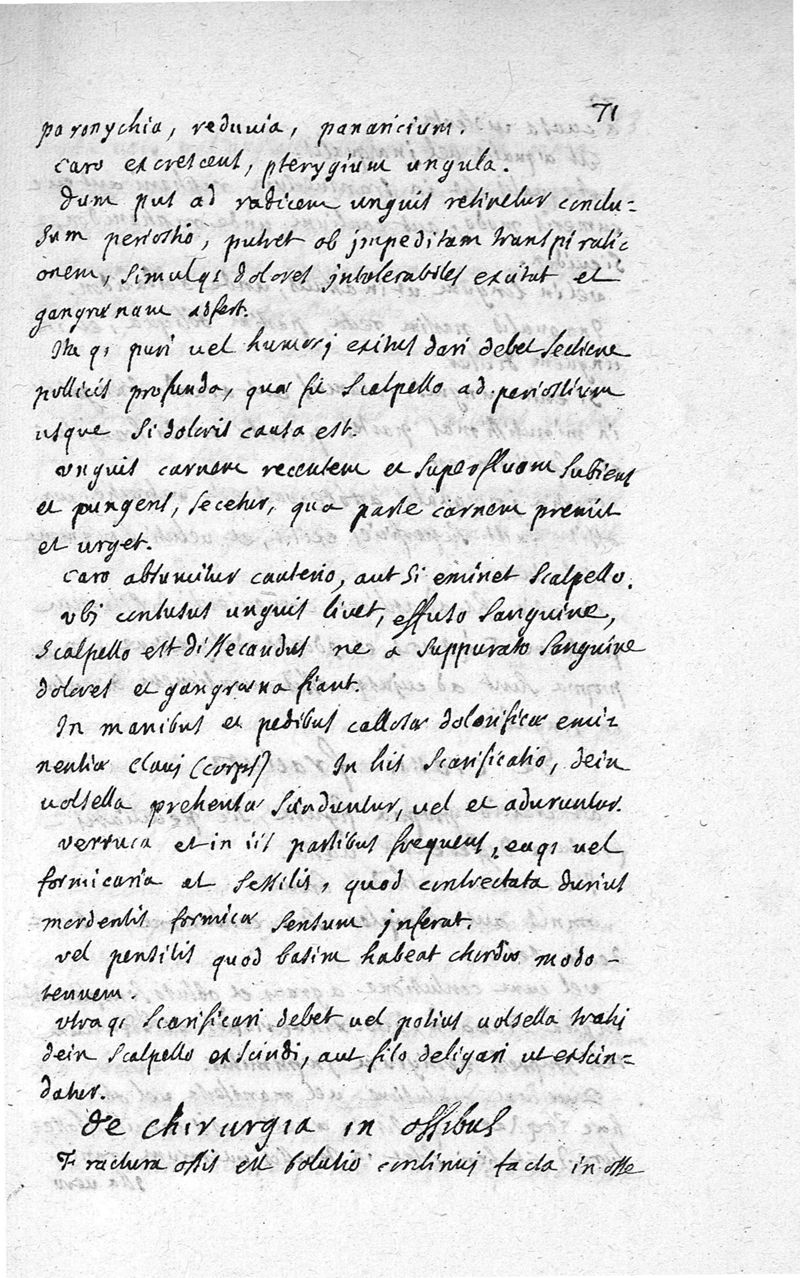 71
paronychia, reduvia, panaricium.
caro excrescens, pterygium ungula.
Dum pus ad radicem unguis retinetur conclu=
sum periostio, putret ob jmpeditam transpirati
onem, simulqȝ dolores jntolerabiles excitat et
gangrænam adfert.
Ita qȝ puri vel humorj exitus dari debet sectione
pollicis profunda, quæ fit scalpello ad periostium
usque si doloris causa est.
vnguis carnem recentem et superfluam subiens
et pungens, secetur, qua parte carnem premit
et urget.
caro absumitur cauterio, aut si eminet scalpello.
vbi contusus unguis livet, effuso sanguine,
scalpello est dissecandus ne a suppurato sanguine
dolores et gangræna fiant.
In manibus et pedibus callosæ dolorificæ emi=
nentiæ clavj (corps) In his scarificatio, dein
volsella prehensæ scinduntur, vel et aduruntur.
verruca et in iis partibus frequens, eaqȝ vel
formicaria at sessilis, quod contrectata durius
mordentis formicæ sensum jnferat.
vel pensilis quod basim habeat chordæ modo
tenuem.
vtraqȝ scarificari debet vel potius volsella trahj
dein scalpello exscindi, aut filo deligari ut exscin=
datur.
de chirurgia in ossibus
Fractura ossis est solutio continuj facta in osse